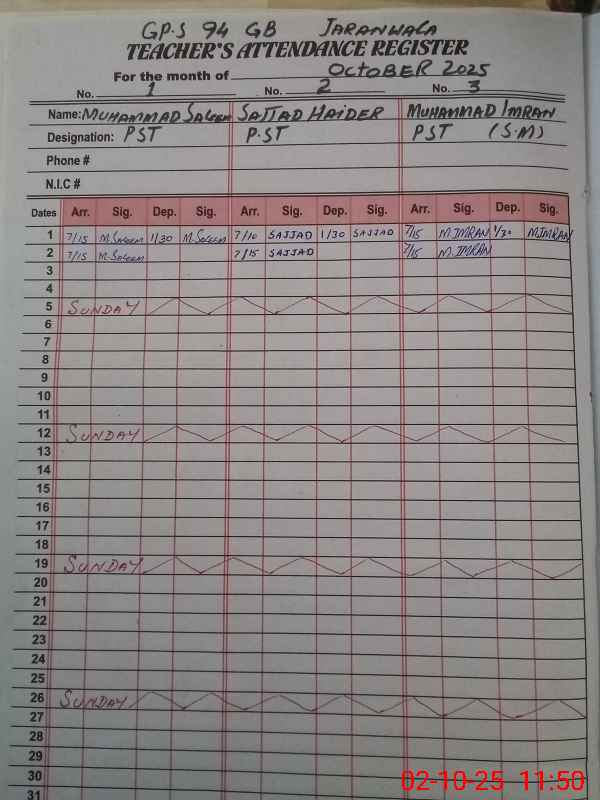 GP.S 94 GB JARANWALA
TEACHER'S ATTENDANCE REGISTER
For the month of OCTOBER 2025
No. 1 No. 2 No. 3
Name: MUHAMMAD SALEEM SAJJAD HAIDER MUHAMMAD IMRAN
Designation: PST P.ST PST (S.M)
Phone #
N.I.C #
Dates Arr. Sig. Dep. Sig. Arr. Sig. Dep. Sig. Arr. Sig. Dep. Sig.
1 7/15 M.Saleem 1/30 M.Saleem 7/10 SAJJAD 1/30 SAJJAD 7/15 M.IMRAN 1/30 M.IMRAN
2 7/15 M.Saleem 7/15 SAJJAD 7/15 M.IMRAN
3
4
5 SUNDAY
6
7
8
9
10
11
12 SUNDAY
13
14
15
16
17
18
19 SUNDAY
20
21
22
23
24
25
26 SUNDAY
27
28
29
30
31
02-10-25 11:50